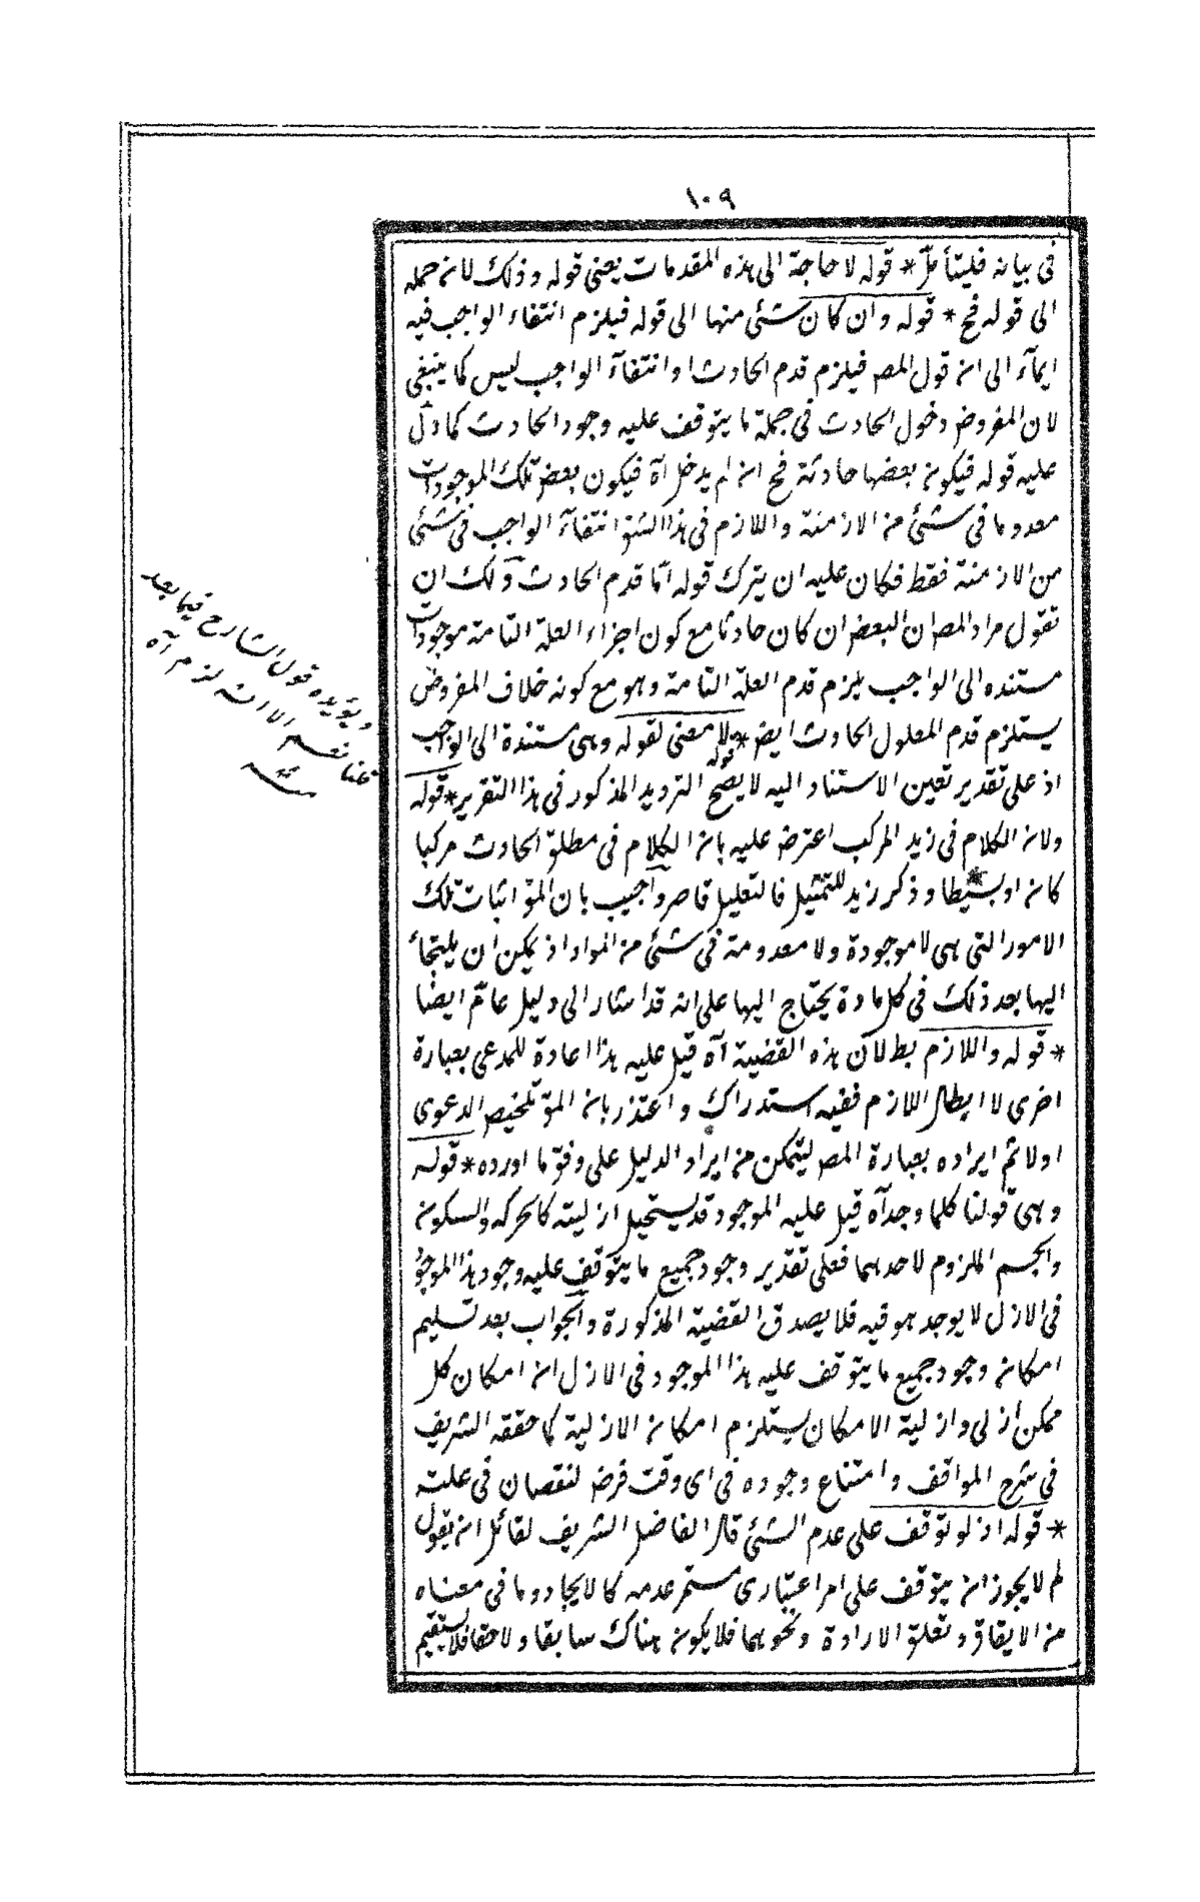 ١٠٩
فى بيانه فليتأمل * قوله لا حاجة الى هذه المقدمات يعنى قوله وذلك لانه جمله
الى قوله فح * قوله وان كان شئ منها الى قوله فيلزم انتفاء الواجب فيه
ايماء الى ان قول المص فيلزم قدم الحادث او انتفاء الواجب ليس كما ينبغى
لان المفروض دخول الحادث فى جملة ما يتوقف عليه وجود الحادث كما دل
عليه قوله فيكون بعضها حادثة فح ان لم يدخل آه فيكون بعض تلك الموجودات
معدوما فى شئ من الازمنة واللازم فى هذا الشق انتفاء الواجب فى شئ
من الازمنة فقط فكان عليه ان يترك قوله اما قدم الحادث ولك ان
تقول مراد المص ان البعض ان كان حادثا مع كون اجزاء العلة التامة موجودات
مستنده الى الواجب يلزم قدم العلة التامة وهو مع كونه خلاف المفروض
يستلزم قدم المعلول الحادث ايض * قوله لا معنى لقوله وهى مستندة الى الواجب
اذ على تقدير تعين الاستناد اليه لا يصح الترديد المذكور فى هذا التقرير * قوله
ولان الكلام فى زيد المركب اعترض عليه بان الكلام فى مطلق الحادث مركبا
كان او بسيطا وذكر زيد للتمثيل فالتعليل قاصر واجيب بان المق اثبات تلك
الامور التى هى لا موجودة ولا معدومة فى شئ من المواد اذ يمكن ان يلتجأ
اليها بعد ذلك فى كل مادة يحتاج اليها على انه قد اشار الى دليل عام ايضا
* قوله واللازم بط لان هذه القضية آه قيل عليه هذا اعادة للمدعى بعبارة
اخرى لا ابطال اللازم ففيه استدراك واعتذر بان المق تلخيص الدعوى
اولا ثم ايراده بعبارة المص ليتمكن من ايراد الدليل على وفق ما اورده * قوله
وهى قولنا كلما وجد آه قيل عليه الموجود قد يستحيل ازليته كالحركه والسكون
والجسم الملزوم لاحدهما فعلى تقدير وجود جميع ما يتوقف عليه وجود هذا الموجو
فى الازل لا يوجد هو فيه فلا يصدق القضية المذكورة والجواب بعد تسليم
امكان وجود جميع ما يتوقف عليه هذا الموجود فى الازل ان امكان كل
ممكن ازلى وازلية الامكان يستلزم امكان الازلية كما حققه الشريف
فى شرح المواقف وامتناع وجوده فى اى وقت فرض لنقصان فى علته
* قوله اذ لو توقف على عدم الشئ قال الفاضل الشريف لقائل ان يقول
لم لا يجوز ان يتوقف على امر اعتبارى مستمر عدمه كالايجاد وما فى معناه
من الايقاع وتعلق الارادة ونحوهما فلا يكون هناك سابقا ولاحقا فلا يستقيم
ويؤيده قول الشارح فيما بعد
نعم الا انه لزم آه
منه